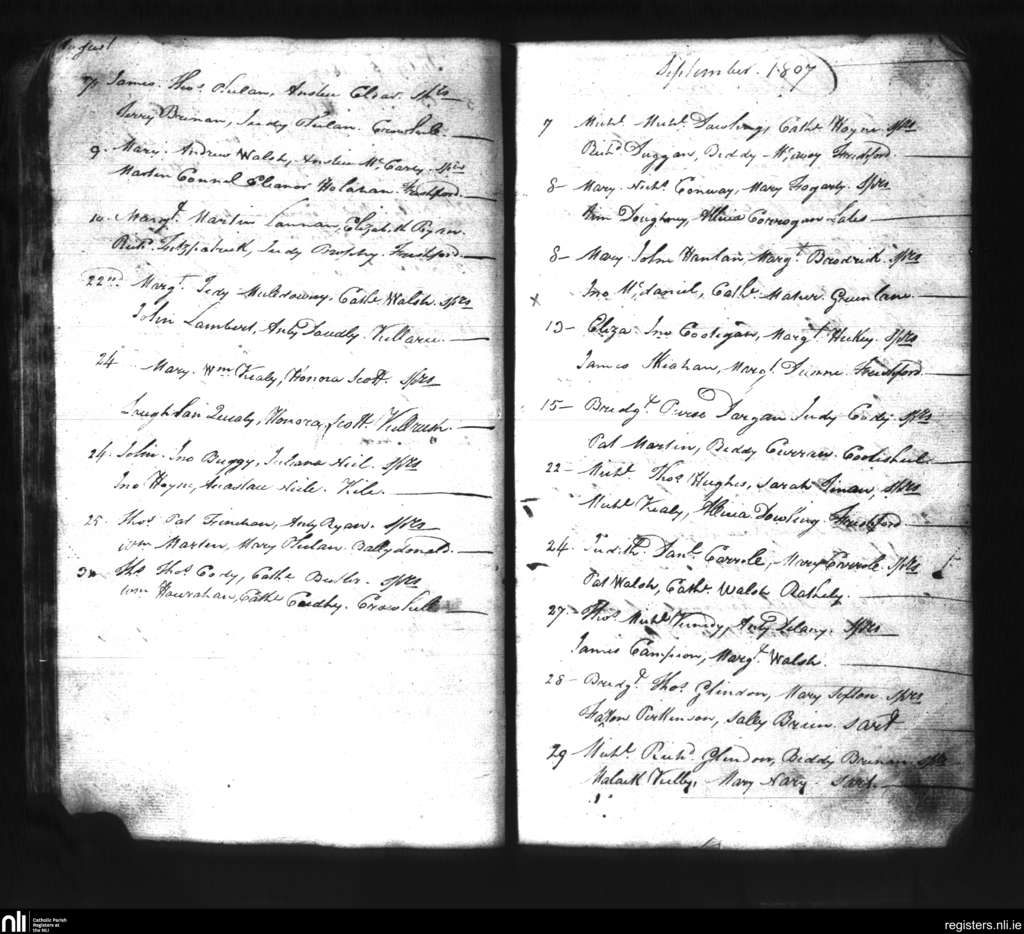 August
7 James. Thos. Phelan, Anstee Clear. Sprs
Jerry Brenan, Judy Phelan. Crowhill.
9. Mary. Andrew Walsh, Anstee McCarey. Sprs
Martin Connel Eleanor Holahan. Freshford.
10. Margt. Martin Lannan, Elizabeth Ryan.
Richd. Fitzpatrick, Judy Brophy. Freshford.
22nd. Margt. Jedy Muldowny. Cathe. Walsh. Sprs
John Lambert, Anty Killaree.
24 Mary. Wm Kealy, Honora Scott. Sprs
Laughlan Quealy, Honora Scott. Killrush.
24. John. Jno Buggy, Juliana Neil. Sprs
Jno. Hoyne, Anastace Neile. Kile.
25. Thos. Pat Trenchan, Anty Ryan. Sprs
Wm Martin, Mary Phelan. Ballydonald.
30 Thos. Thos. Cody, Cathe. Butler. Sprs
Wm Hourahan, Cathe. Crowhill
September. 1807
7 Michl. Michl. Dowling, Cathe. Hoyne. Sprs
Richd. Duggan, Biddy Freshford.
8 - Mary. Nichs. Conway, Mary Fogarty. Sprs
Wm Doughony, Allicia Corrogan - Lates
8 - Mary. John Hanlan, Margt. Brodrick. Sprs
x Jno McDaniel, Cathe. Maher. Greenlane.
13 - Eliza. Jno Costigan, Margt. Hickey. Sprs
James Meahan, Margt. Dunne. Freshford.
15 - Bridgt. Pierse Dargan Judy Cody. Sprs
Pat Martin, Biddy Curran. Coolishiel.
22 - Michl. Thos. Hughes, Sarah Sprs
Michl. Kealy, Allicia Dowling. Freshford
24. Judith. Danl. Carrole, Mary Carrole. Sprs
Pat Walsh, Cathe. Walsh Rathely.
27. - Thos. Michl. Kenedy, Anty Delany. Sprs
James Campion, Margt. Walsh.
28 - Bridgt. Thos. Glindon, Mary Sexton. Sprs
Faxton Perkinson, Sally Brien. Sart
29 Michl. Richd. Glindon, Biddy Brenan. Sprs
Malack Mary Nary. Sart.
nli
Catholic Parish
Registers at
the NLI
registers.nli.ie